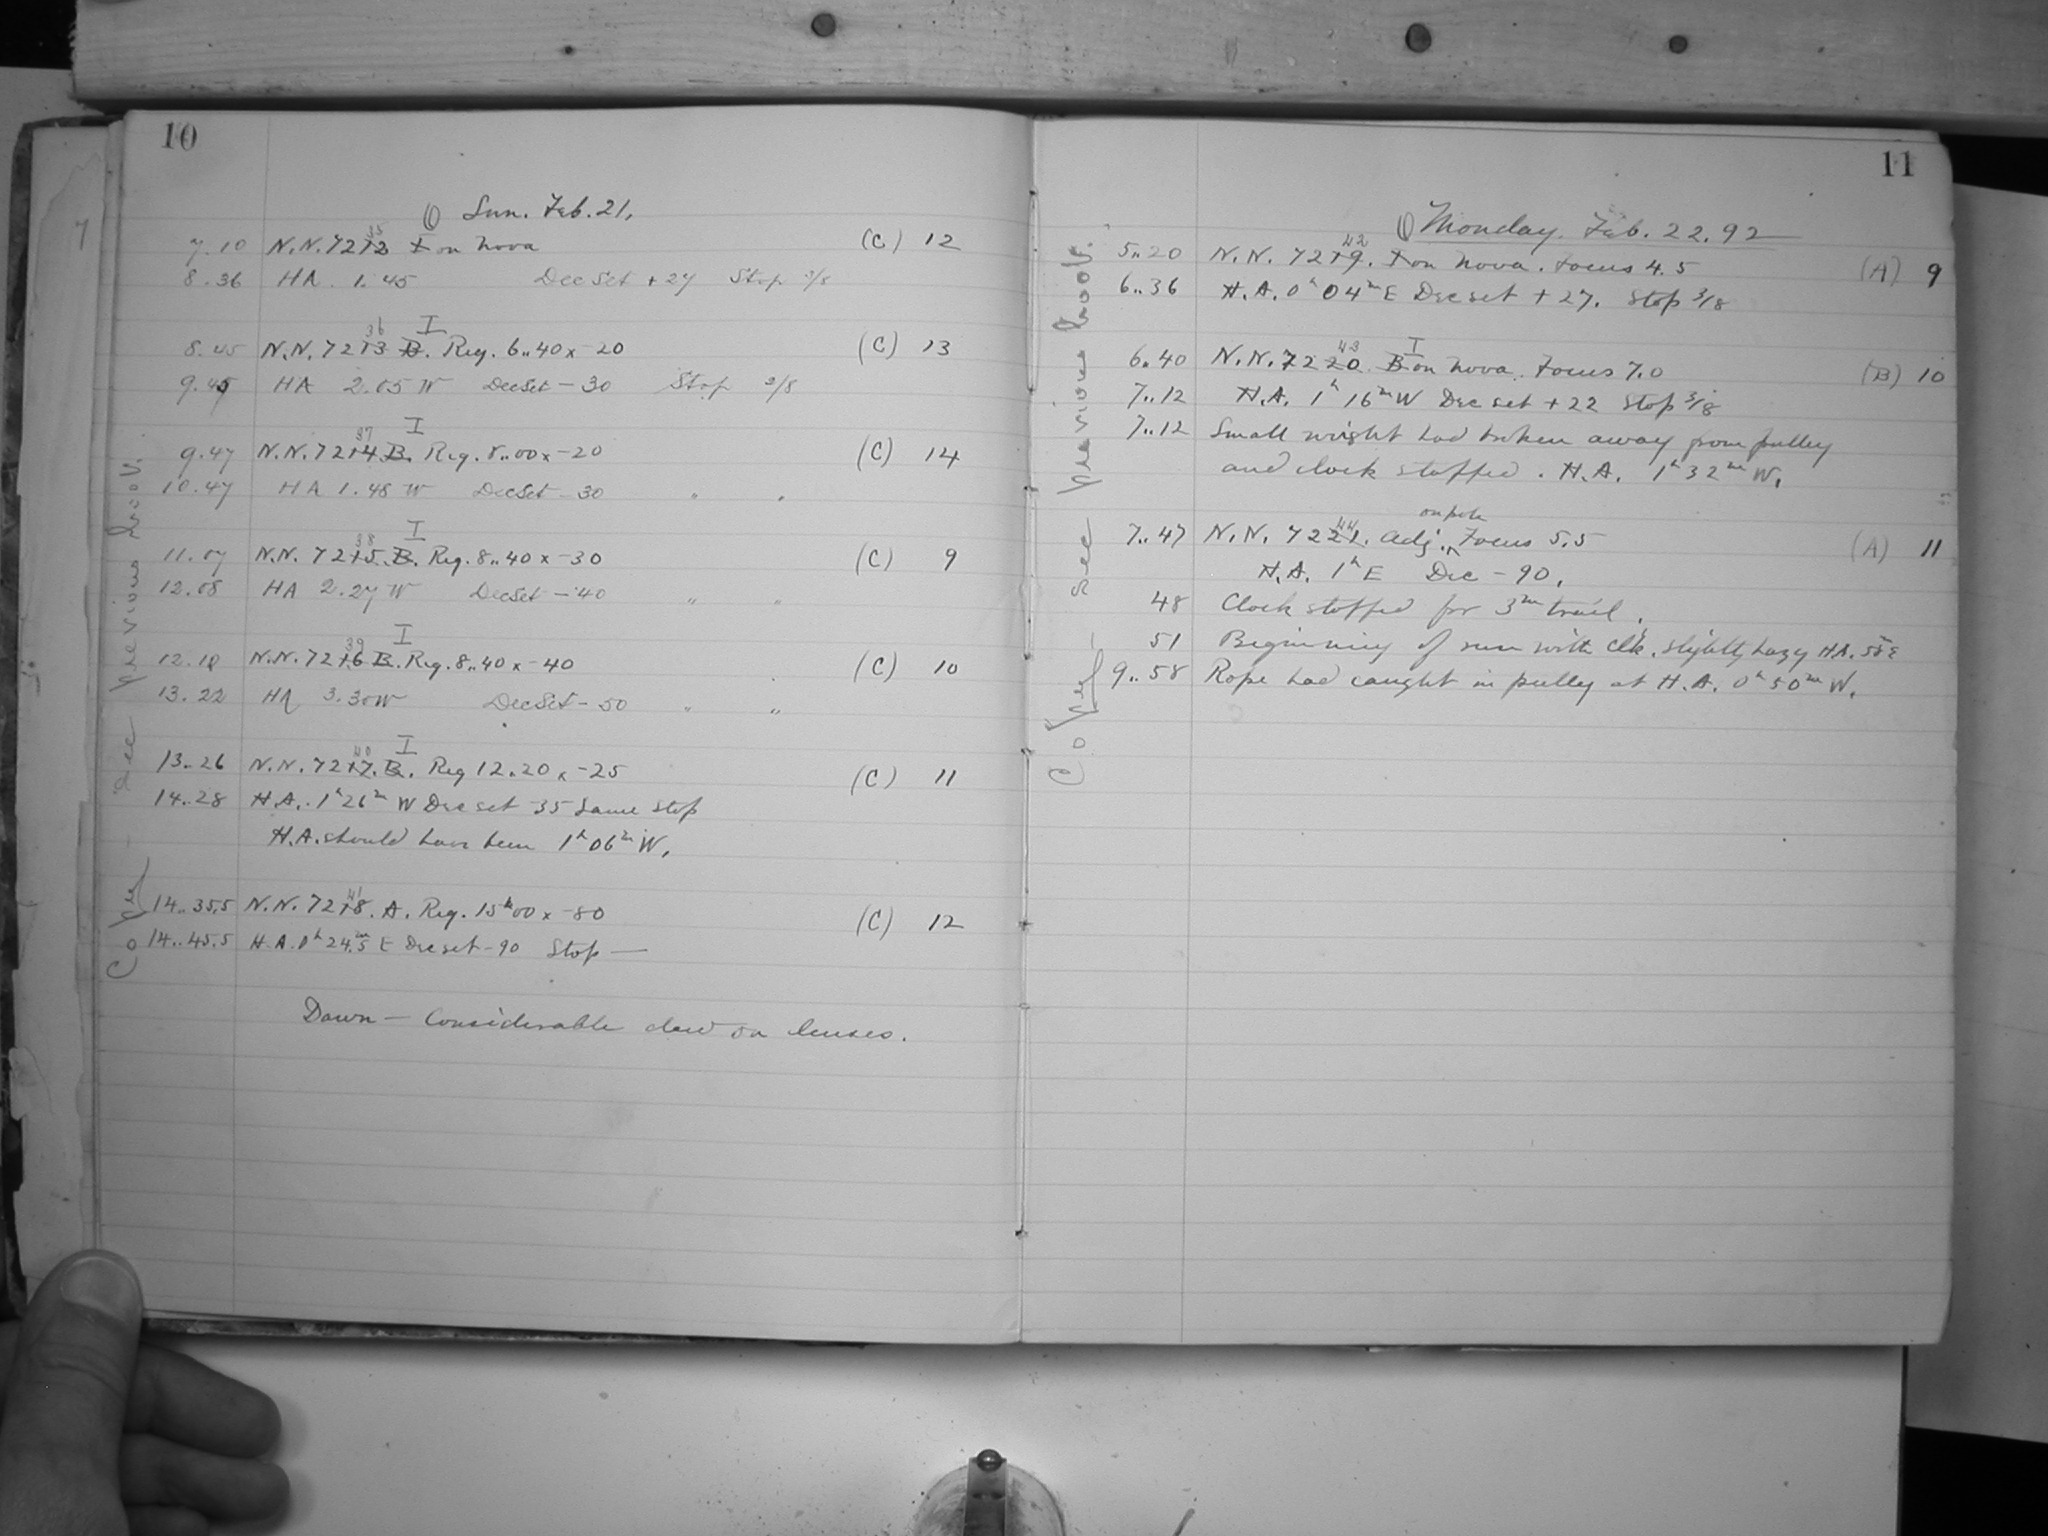 10
Sun. Feb. 21,
35
7.10 N.N. 7212 I on Nova (C) 12
8.36 HA. 1.45 Dec Set + 27 Stop 3/8
36 I
8.45 N.N. 7213 B. Reg. 6..40 x -20 (C) 13
9.45 HA 2.05 W DecSet - 30 Stop 3/8
37 I
9.47 N.N. 7214 B. Reg. 8..00 x -20 (C) 14
10.47 HA 1.48 W DecSet - 30 " "
38 I
11.07 N.N. 7215. B. Reg. 8..40 x -30 (C) 9
12.08 HA 2.27 W DecSet - 40 " "
39 I
12.18 N.N. 7216 B. Reg. 8..40 x -40 (C) 10
13.22 HA 3.30W DecSet - 50 " "
40 I
13..26 N.N. 7217. B. Reg 12..20 x -25 (C) 11
14..28 H.A. 1h 26m W Dec set -35 Same stop
H.A. should have been 1h 06m W.
41
14..35.5 N.N. 7218. A. Reg. 15h 00 x -80 (C) 12
14..45.5 H.A. 0h 24.5m E Dec set -90 Stop —
Dawn — Considerable dew on lenses.
Copy — see previous book.
11
Monday. Feb. 22. 92
42
5..20 N.N. 7219. I on Nova. Focus 4.5 (A) 9
6..36 H.A. 0h 04m E Dec set + 27. Stop 3/8
43 I
6..40 N.N. 7220. B on Nova. Focus 7.0 (B) 10
7..12 H.A. 1h 16m W Dec set + 22 Stop 3/8
7..12 Small weight had broken away from pulley
and clock stopped. H.A. 1h 32m W.
44 on pole
7..47 N.N. 7221. Adj. Focus 5.5 (A) 11
H.A. 1h E Dec - 90.
48 Clock stopped for 3m trail.
51 Beginning of run with clk. slightly hazy H.A. 58m E
9..58 Rope had caught in pulley at H.A. 0h 50m W.
Copy — see previous book.